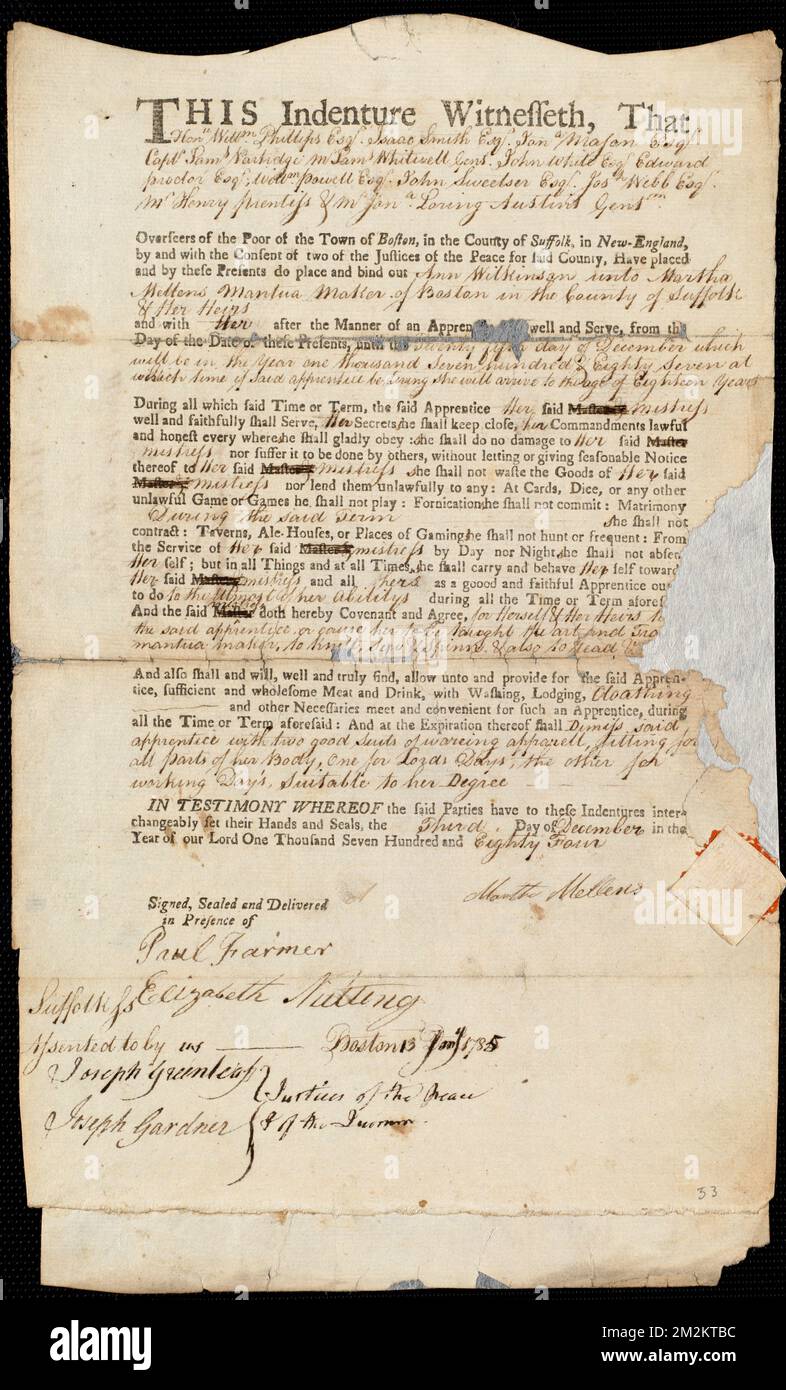 THIS Indenture Witnesseth, That
Honl Willm Phillips Esqr. Isaac Smith Esqr. Jona Mason Esqr.
Captn Saml Partridge Mr Saml Whitwell Gent. John White Esqr Edward
Proctor Esqr, Willm Powell Esqr. John Sweetser Esqr. Josh Webb Esqr.
Mr Henry Prentiss & Mr Jona Loring Austins Gentmn
Overſeers of the Poor of the Town of Boſton, in the County of Suffolk, in New-England,
by and with the Conſent of two of the Juſtices of the Peace for ſaid County, Have placed
and by theſe Preſents do place and bind out Ann Wilkinson unto Martha
Mellens Mantua Maker of Boston in the County of Suffolk
& Her Heirs
and with Her after the Manner of an Appren well and Serve, from the
Day of the Date of theſe Preſents, until the Twenty fifth day of December which
will be in the Year one thousand Seven hundred & Eighty Seven at
which time if Said apprentice be living She will arrive to the age of Eighteen Years
During all which ſaid Time or Term, the ſaid Apprentice Her ſaid Maſter mistress
well and faithfully ſhall Serve, Her Secrets, he ſhall keep cloſe, her Commandments lawful
and honeſt every where, she ſhall gladly obey: she ſhall do no damage to Her ſaid Maſter
mistress nor ſuffer it to be done by others, without letting or giving ſeaſonable Notice
thereof to Her ſaid Maſter mistress she ſhall not waſte the Goods of Her ſaid
Maſter mistress nor lend them unlawfully to any: At Cards, Dice, or any other
unlawful Game or Games he ſhall not play: Fornication, she ſhall not commit: Matrimony
During the said Term she ſhall not
contract: Taverns, Ale-Houſes, or Places of Gaming, she ſhall not hunt or frequent: From
the Service of Her ſaid Maſter mistress by Day nor Night, she ſhall not abſen
Her ſelf; but in all Things and at all Times, she ſhall carry and behave Her ſelf toward
Her ſaid Maſter mistress and all hers as a good and faithful Apprentice ou
to do to the utmost of her abilitys during all the Time or Term aforeſ
And the ſaid Maſter doth hereby Covenant and Agree, for Herself & Her Heirs
the said apprentice or cause her to be taught the art and
mantua maker, to knit, Sew & Spinn & also to read &
And alſo ſhall and will, well and truly find, allow unto and provide for the ſaid Appren-
tice, ſufficient and wholeſome Meat and Drink, with Waſhing, Lodging, Cloathing
and other Neceſſaries meet and convenient for ſuch an Apprentice, during
all the Time or Term aforeſaid: And at the Expiration thereof ſhall Dimiss said
apprentice with two good Suits of wareing apparell, fitting for
all parts of her Body, One for Lords Days, the other for
working Day's, Suitable to her Degree
IN TESTIMONY WHEREOF the ſaid Parties have to theſe Indentures inter-
changeably ſet their Hands and Seals, the Third Day of December in the
Year of our Lord One Thouſand Seven Hundred and Eighty Four
Martha Mellens
Signed, Sealed and Delivered
in Preſence of
Paul Farmer
Elizabeth Nutting
Suffolk Ss
Assented to by us Boston 13 Jany 1785
Joseph Greenleaf
Justices of the Peace
Joseph Gardner & of the Quorum
33
alamy
Image ID: 2M2KTBC
www.alamy.com